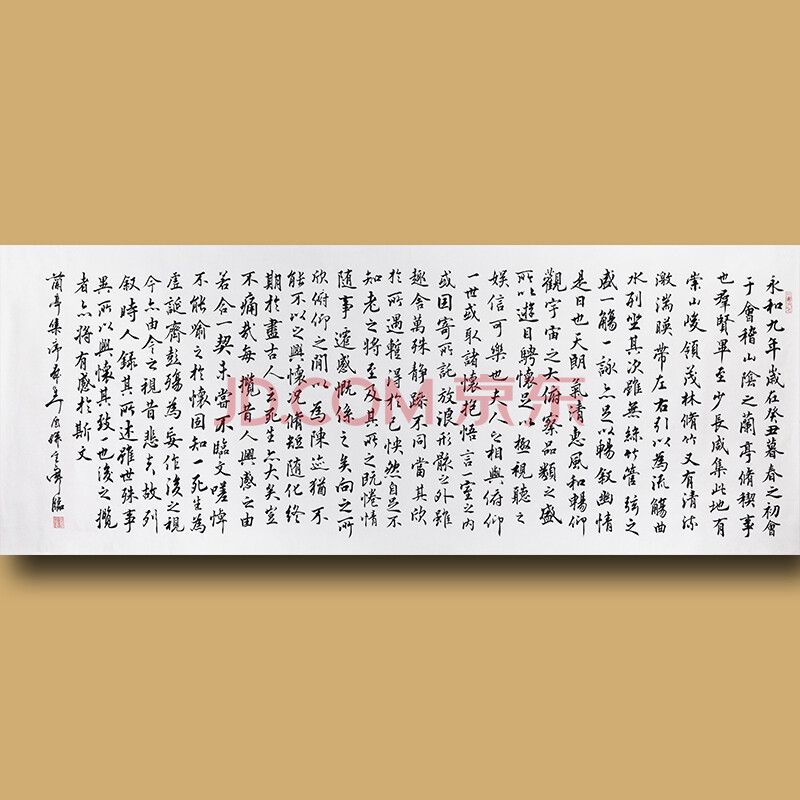 永和九年歲在癸丑暮春之初會
于會稽山陰之蘭亭脩稧事
也羣賢畢至少長咸集此地有
崇山峻領茂林脩竹又有清流
激湍暎帶左右引以為流觴曲
水列坐其次雖無絲竹管弦之
盛一觴一詠亦足以暢叙幽情
是日也天朗氣清惠風和暢仰
觀宇宙之大俯察品類之盛
所以遊目騁懷足以極視聽之
娛信可樂也夫人之相與俯仰
一世或取諸懷抱悟言一室之內
或因寄所託放浪形骸之外雖
趣舍萬殊靜躁不同當其欣
於所遇暫得於己怏然自足不
知老之將至及其所之既惓情
隨事遷感慨係之矣向之所
欣俯仰之間以為陳迹猶不
能不以之興懷况脩短隨化終
期於盡古人云死生亦大矣豈
不痛哉每攬昔人興感之由
若合一契未嘗不臨文嗟悼
不能喻之於懷固知一死生為
虛誕齊彭殤為妄作後之視
今亦由今之視昔悲夫故列
叙時人錄其所述雖世殊事
異所以興懷其致一也後之攬
者亦將有感於斯文
蘭亭集序 臨
JD.COM 京东